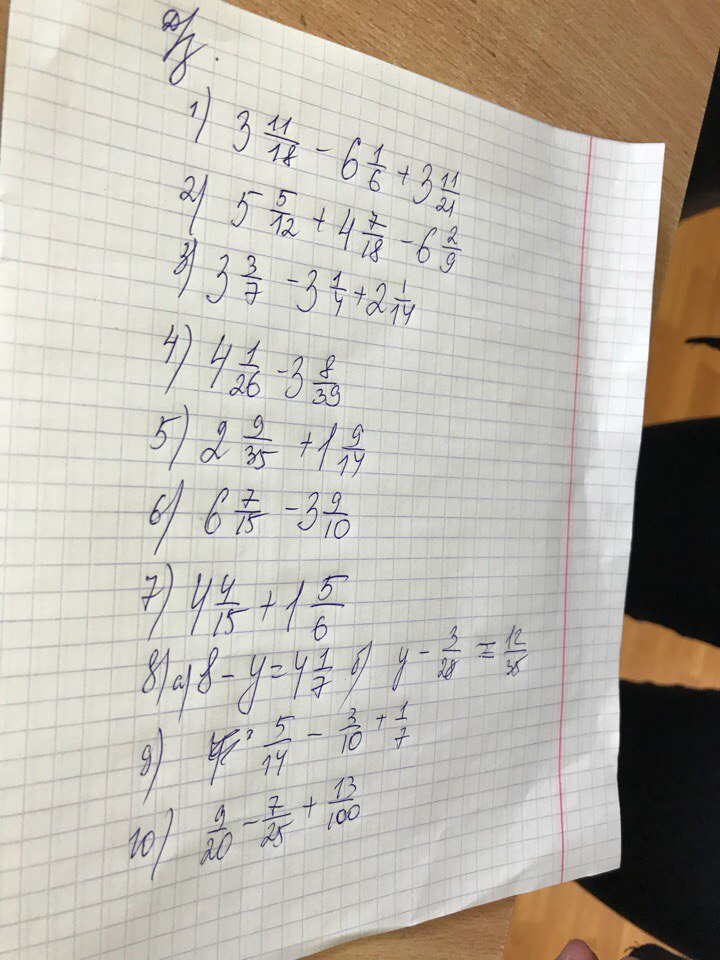 Д/з.
1) 3 11/18 - 6 1/6 + 3 11/21
2) 5 5/12 + 4 7/18 - 6 2/9
3) 3 3/7 - 3 1/4 + 2 1/14
4) 4 1/26 - 3 8/39
5) 2 9/35 + 1 9/14
6) 6 7/15 - 3 9/10
7) 4 4/15 + 1 5/6
8) а) 8 - y = 4 1/7 б) y - 3/28 = 12/35
9) 5/14 - 3/10 + 1/7
10) 9/20 - 7/25 + 13/100